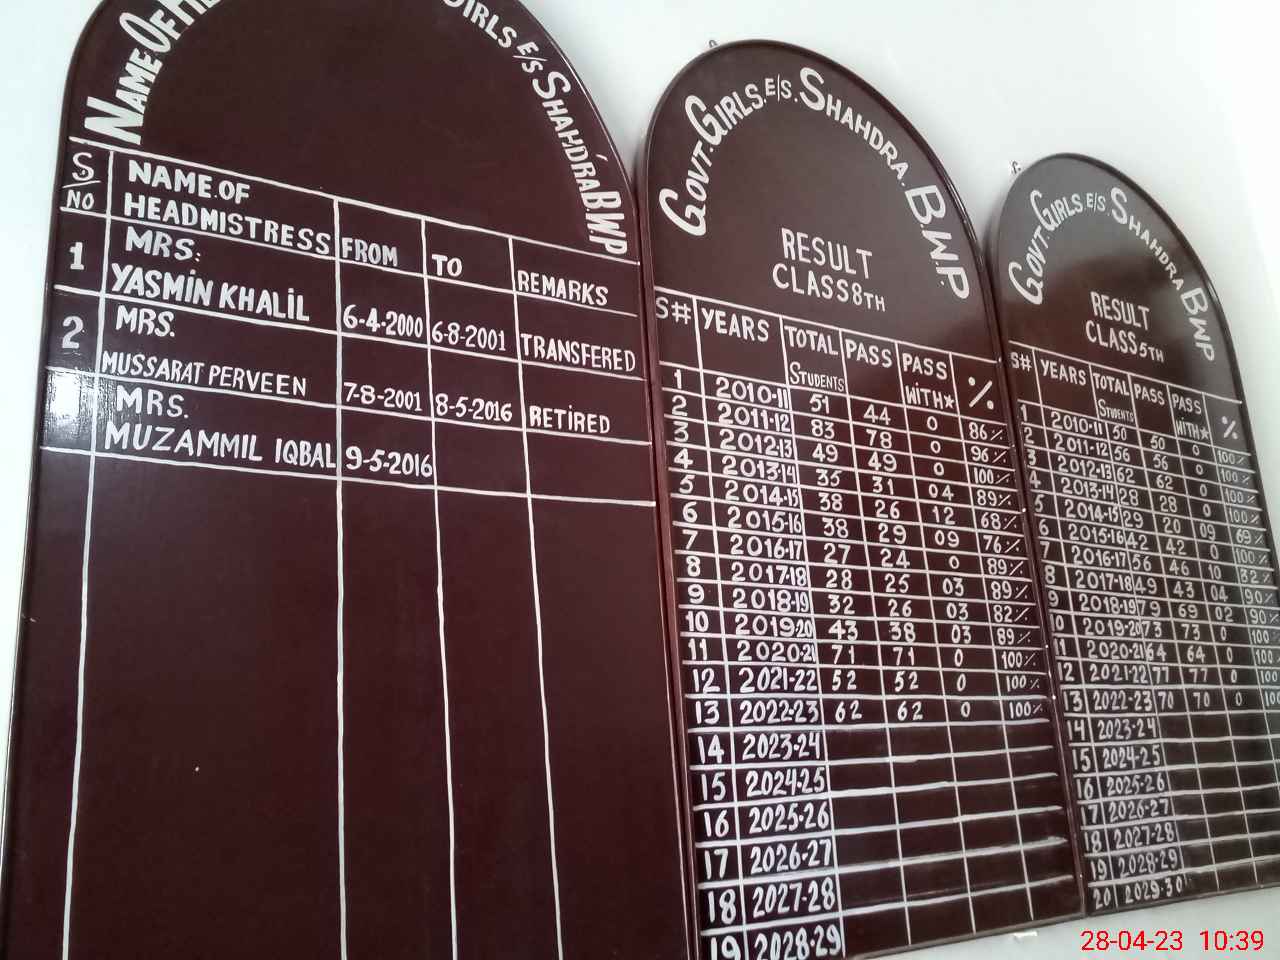 NAME OF
GIRLS E/S SHAHDRA B.W.P
S/NO NAME.OF HEADMISTRESS FROM TO REMARKS
1 MRS: YASMIN KHALIL 6-4-2000 6-8-2001 TRANSFERED
2 MRS. MUSSARAT PERVEEN 7-8-2001 8-5-2016 RETIRED
MRS. MUZAMMIL IQBAL 9-5-2016
GOVT. GIRLS. E/S. SHAHDRA. B.W.P.
RESULT
CLASS 8TH
S# YEARS TOTAL STUDENTS PASS PASS WITH★ %
1 2010-11 51 44 0 86%
2 2011-12 83 78 0 96%
3 2012-13 49 49 0 100%
4 2013-14 35 31 04 89%
5 2014-15 38 26 12 68%
6 2015-16 38 29 09 76%
7 2016-17 27 24 0 89%
8 2017-18 28 25 03 89%
9 2018-19 32 26 03 82%
10 2019-20 43 38 03 89%
11 2020-21 71 71 0 100%
12 2021-22 52 52 0 100%
13 2022-23 62 62 0 100%
14 2023-24
15 2024-25
16 2025-26
17 2026-27
18 2027-28
19 2028-29
GOVT. GIRLS. E/S. SHAHDRA BWP
RESULT
CLASS 5TH
S# YEARS TOTAL STUDENTS PASS PASS WITH★ %
1 2010-11 50 50 0 100%
2 2011-12 56 56 0 100%
3 2012-13 62 62 0 100%
4 2013-14 28 28 0 100%
5 2014-15 29 20 09 69%
6 2015-16 42 42 0 100%
7 2016-17 56 46 10 82%
8 2017-18 49 43 04 90%
9 2018-19 79 69 02 90%
10 2019-20 73 73 0 100
11 2020-21 64 64 0 100
12 2021-22 77 77 0 100
13 2022-23 70 70 0 100
14 2023-24
15 2024-25
16 2025-26
17 2026-27
18 2027-28
19 2028-29
20 2029-30
28-04-23 10:39